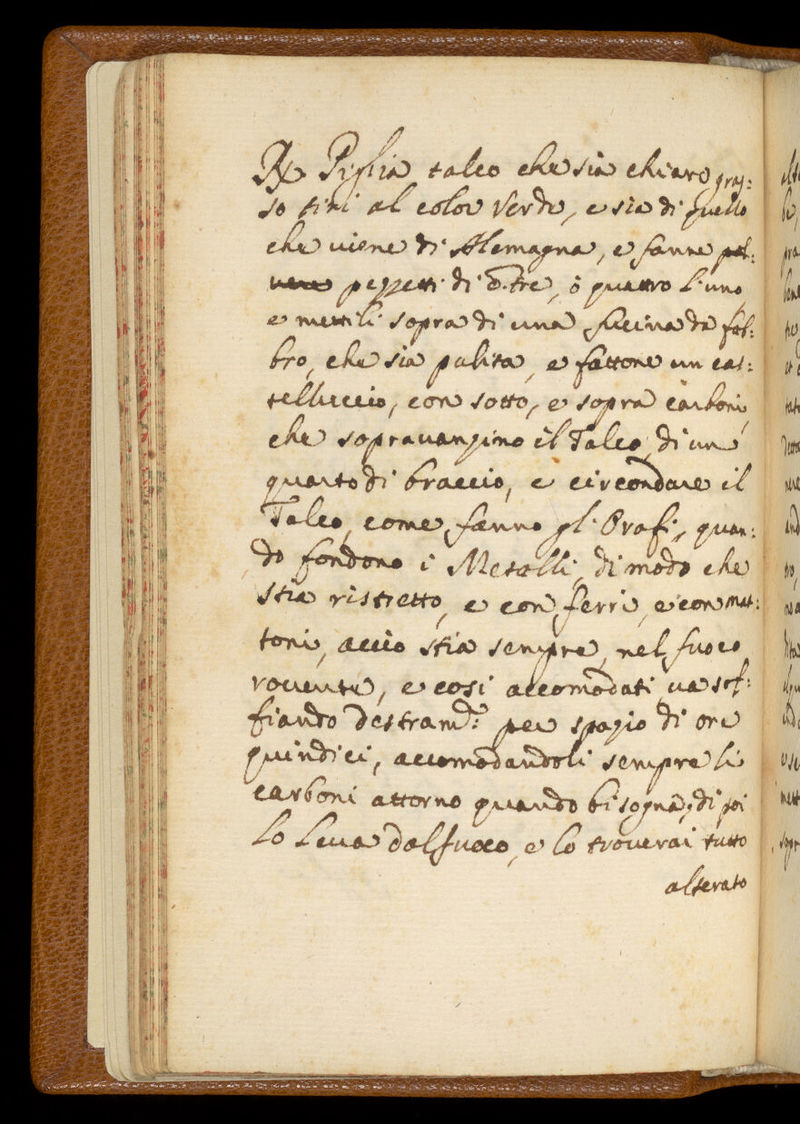 Rx Piglia talco che sia chiaro gras:
so tiri al color Verde, e sia di quello
che viene di Alemagna, e fanne pol:
vere pezzetti di ō. tre, ò quattro l'uno
e mettili sopra di una fucina da fab:
bro, che sia pulita, e fattone un cas:
telluccio, con sotto, e sopra carboni,
che sopravanzino il Talco, di un
quarto di braccio, e circondare il
Talco, come fanno gl'Orafi, quan:
do fondono i Metalli, di modo che
stia ristretto, e con ferri, e con mat:
toni, acciò stia sempre, nel fuoco
rovente, e così accomodati va sof:
fiando destram.te per spazio di ore
quindici, accomodandoli sempre li
carboni attorno quando bisogna, di poi
lo leva dal fuoco, e lo troverai tutto
alterato